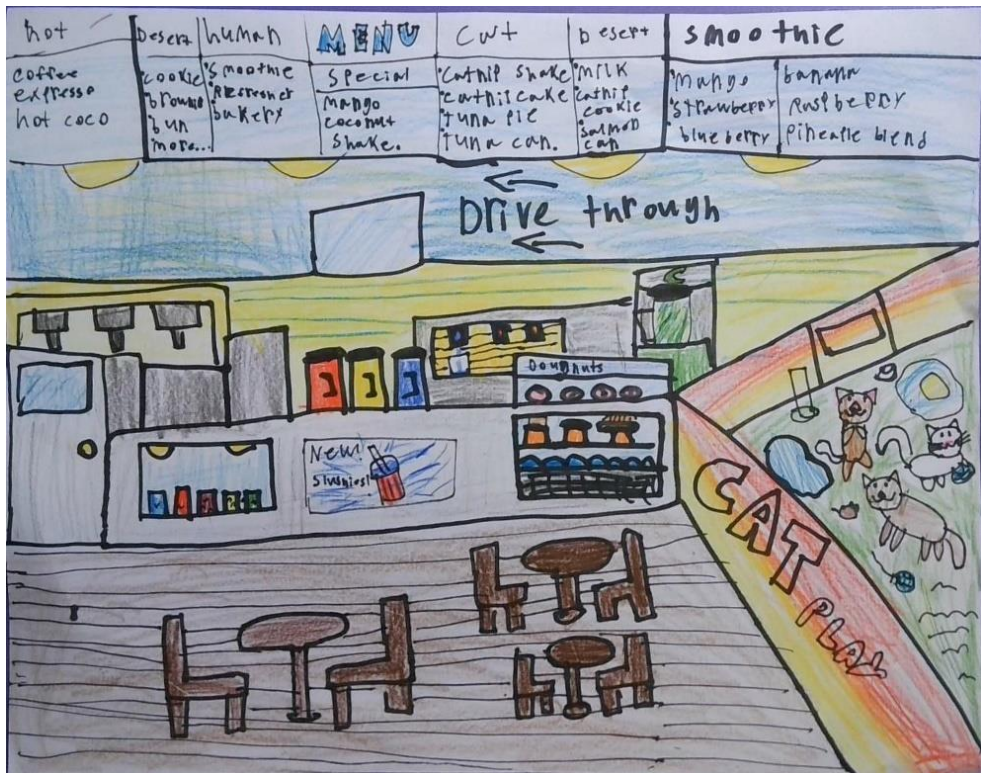 hot
coffee
expresso
hot coco
Desert
cookie
brownie
bun
more...
human
smoothie
Refresher
bakery
MENU
special
mango
coconut
shake.
Cat
catnip shake
catnip cake
tuna pie
tuna can.
Desert
milk
catnip
cookie
salmon
can
smoothie
mango
strawberry
blue berry
banana
Rasp berry
pineaple blend
Drive through
Doughnuts
New!
Slushies!
CAT
PLAY